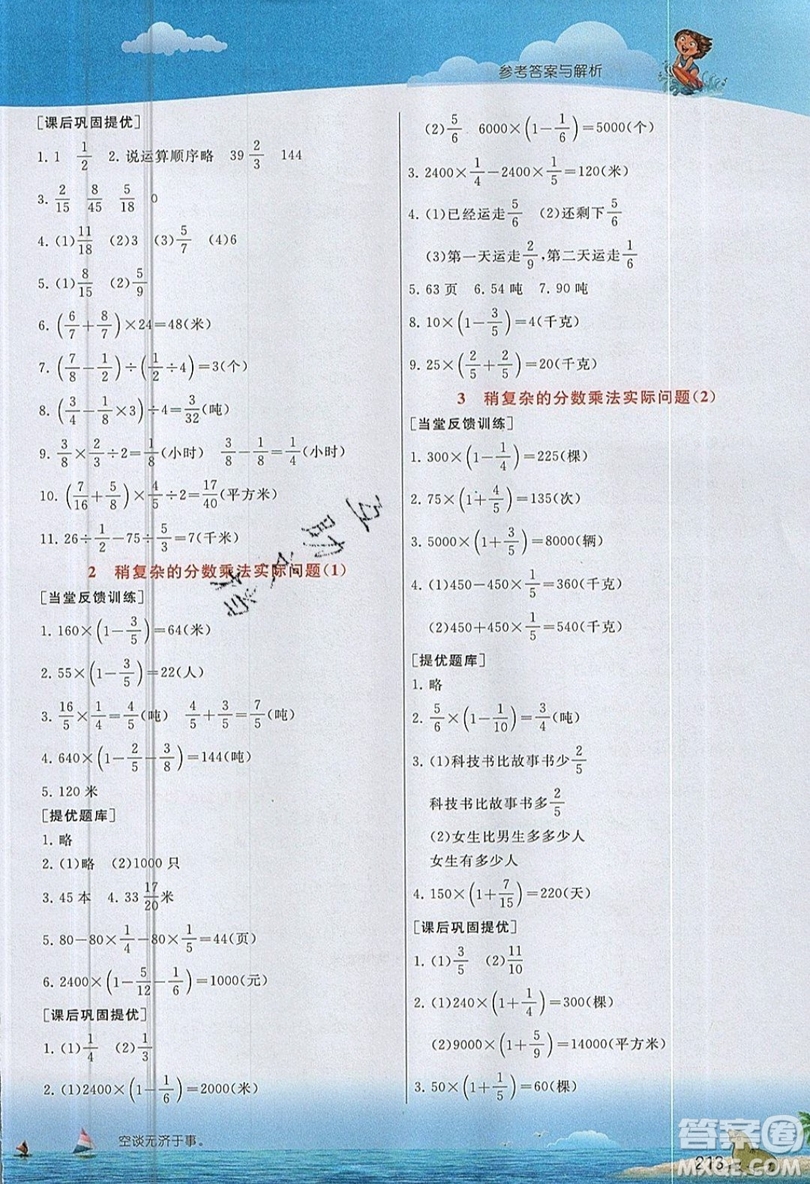 参考答案与解析
[课后巩固提优]
1. 1 1/2 2. 说运算顺序略 39 2/3 144
3. 2/15 8/45 5/18 0
4. (1)11/18 (2)3 (3)5/7 (4)6
5. (1)8/15 (2)5/9
6. (6/7+8/7)×24=48(米)
7. (7/8-1/2)÷(1/2÷4)=3(个)
8. (3/4-1/8×3)÷4=3/32(吨)
9. 3/8×2/3÷2=1/8(小时) 3/8-1/8=1/4(小时)
10. (7/16+5/8)×4/5÷2=17/40(平方米)
11. 26÷1/2-75÷5/3=7(千米)
2 稍复杂的分数乘法实际问题(1)
[当堂反馈训练]
1. 160×(1-3/5)=64(米)
2. 55×(1-3/5)=22(人)
3. 16/5×1/4=4/5(吨) 4/5+3/5=7/5(吨)
4. 640×(1-2/5-3/8)=144(吨)
5. 120 米
[提优题库]
1. 略
2. (1)略 (2)1000 只
3. 45 本 4. 33 17/20 米
5. 80-80×1/4-80×1/5=44(页)
6. 2400×(1-5/12-1/6)=1000(元)
[课后巩固提优]
1. (1)1/4 (2)1/3
2. (1)2400×(1-1/6)=2000(米)
(2)5/6 6000×(1-1/6)=5000(个)
3. 2400×1/4-2400×1/5=120(米)
4. (1)已经运走5/6 (2)还剩下5/6
(3)第一天运走2/9 第二天运走1/6
5. 63 页 6. 54 吨 7. 90 吨
8. 10×(1-3/5)=4(千克)
9. 25×(2/5+2/5)=20(千克)
3 稍复杂的分数乘法实际问题(2)
[当堂反馈训练]
1. 300×(1-1/4)=225(棵)
2. 75×(1+4/5)=135(次)
3. 5000×(1+3/5)=8000(辆)
4. (1)450-450×1/5=360(千克)
(2)450+450×1/5=540(千克)
[提优题库]
1. 略
2. 5/6×(1-1/10)=3/4(吨)
3. (1)科技书比故事书少2/5
科技书比故事书多2/5
(2)女生比男生多多少人
女生有多少人
4. 150×(1+7/15)=220(天)
[课后巩固提优]
1. (1)3/5 (2)11/10
2. (1)240×(1+1/4)=300(棵)
(2)9000×(1+5/9)=14000(平方米)
3. 50×(1+1/5)=60(棵)
空谈无济于事。
213
答案圈
MXQE.COM